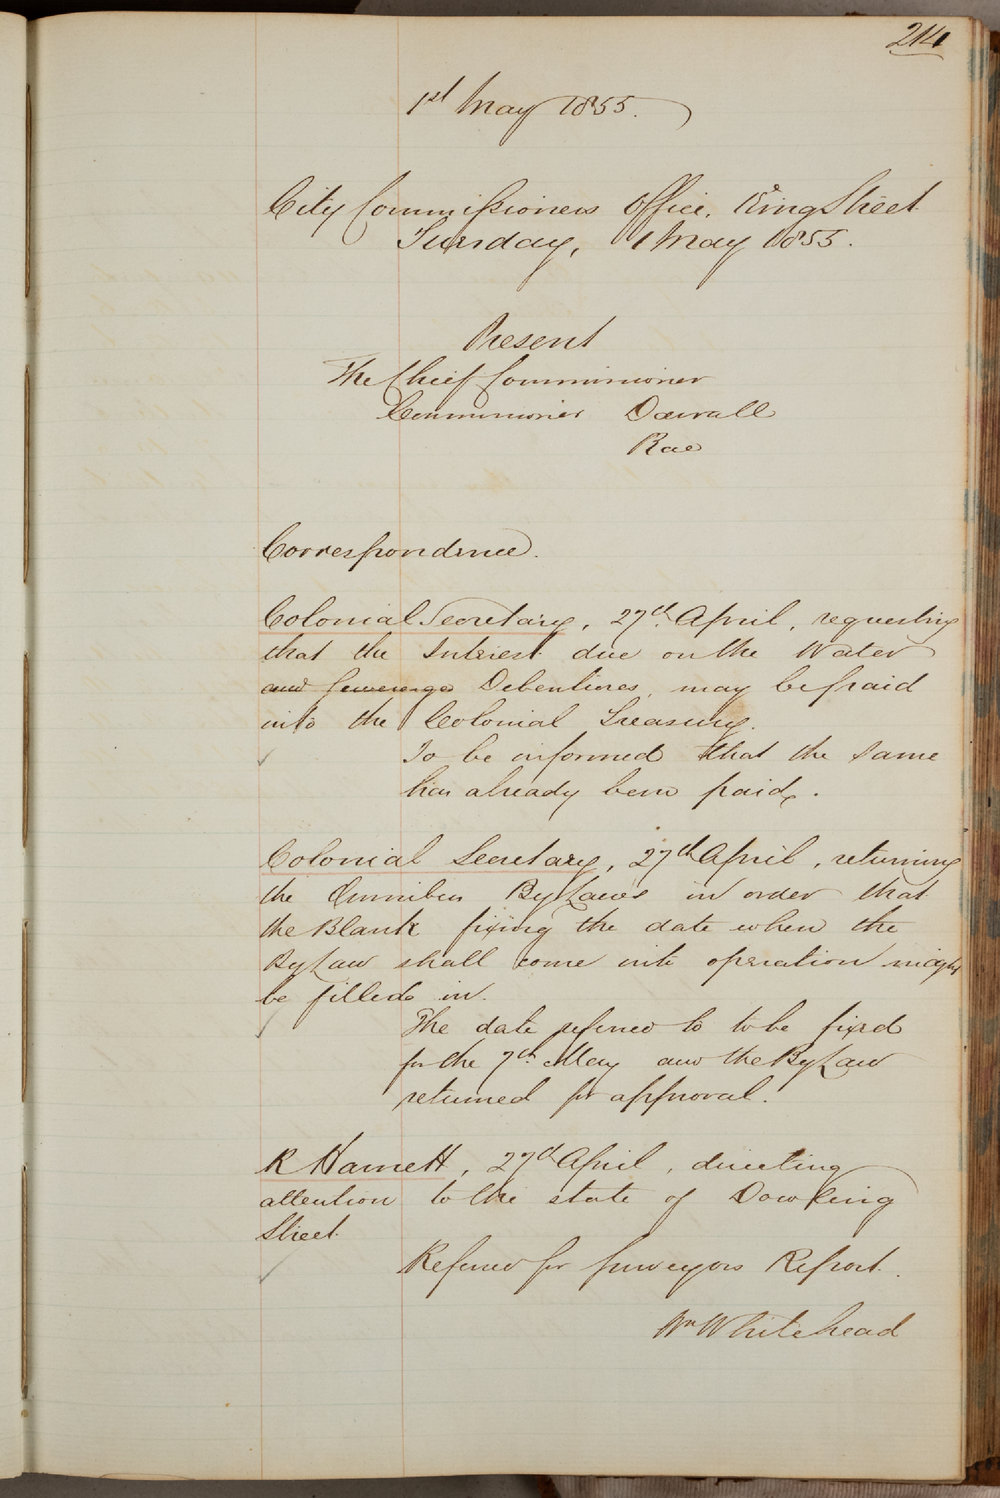 214
1st May 1855.
City Commissioners Office, King Street
Tuesday, 1 May 1855.
Present
The Chief Commissioner
Commissioner Darvall
Rae
Correspondence.
Colonial Secretary, 27th April, requesting
that the Interest due on the Water
and Sewerage Debentures, may be paid
into the Colonial Treasury.
To be informed that the same
has already been paid.
Colonial Secretary, 27th April, returning
the Omnibus By Laws in order that
the Blank fixing the date when the
By Law shall come into operation might
be filled in.
The date referred to to be fixed
for the 7th May and the By Law
returned for approval.
R Harnett, 27th April, directing
attention to the state of Dowling
Street
Referred for Surveyors Report.
Wm Whitehead